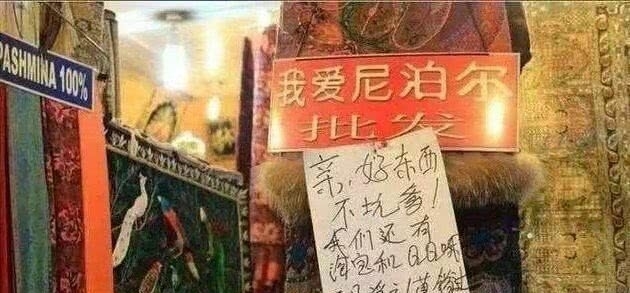 PASHMINA 100%
我爱尼泊尔
批发
亲,好东西
不坑爹!
我们还有
淘宝和QQ呀